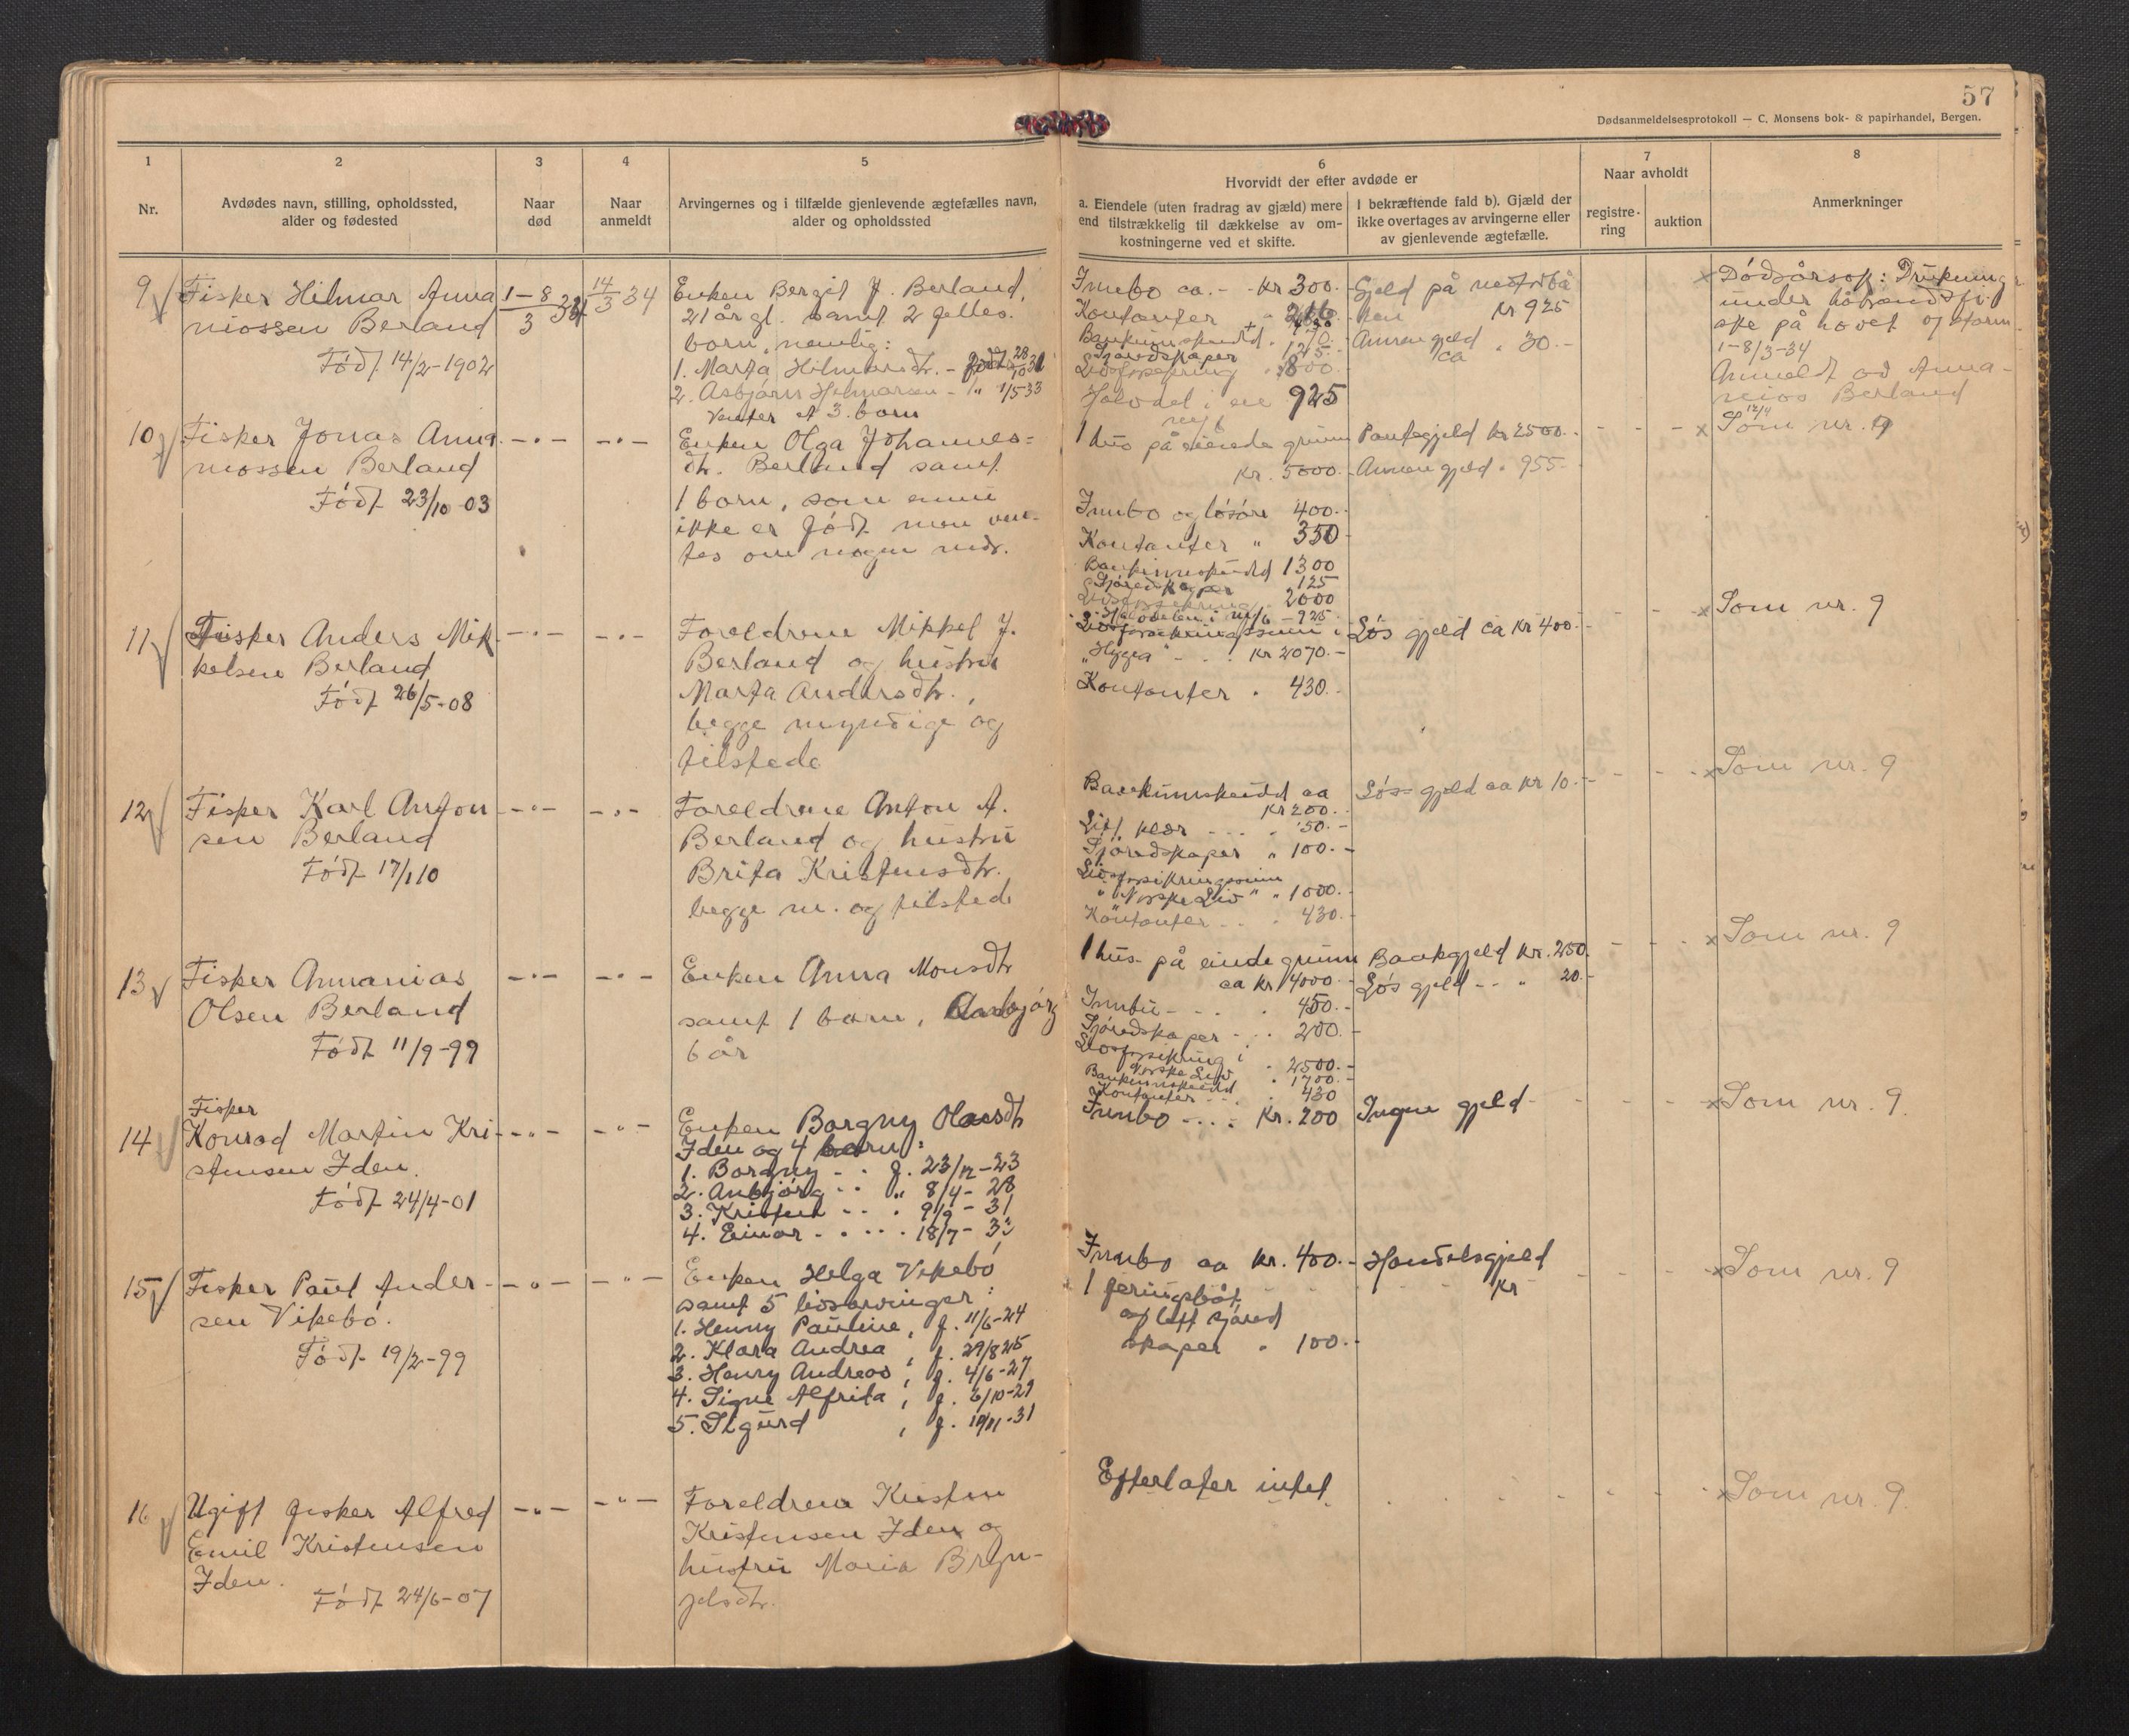 57
Dødsanmeldelsesprotokoll — C. Monsens bok- & papirhandel, Bergen.
1
Nr.
2
Avdødes navn, stilling, opholdssted,
alder og fødested
3
Naar
død
4
Naar
anmeldt
5
Arvingernes og i tilfælde gjenlevende ægtefælles navn,
alder og opholdssted
6
Hvorvidt der efter avdøde er
a. Eiendele (uten fradrag av gjæld) mere
end tilstrækkelig til dækkelse av om-
kostningerne ved et skifte.
I bekræftende fald b). Gjæld der
ikke overtages av arvingerne eller
av gjenlevende ægtefælle.
7
Naar avholdt
registre-
ring
auktion
8
Anmerkninger
9
Fisker Hilmar Anna
niossen Berland
Født 14/2-1902
1-8/3 34
14/3 34
Enken Bergit J. Berland,
21 år gl. samt 2 felles
born, nemlig:
1. Marta Hilmarsdtr. - født 28/10 31
2. Asbjørn Hilmarsen - " 1/5 33
Venter et 3. born
Innbo ca. - - kr 300.-
Kontanter
Bankinnskudd
Sjøredskaper 125.-
Livsforsikring 800.-
Halvdel i 925
Gjeld på
kr 925
Annen gjeld
ca " 30.-
x Dødsårsak: Drukning
under håbrandsfi
ske på havet og storm
1-8/3-34
Anmeldt av Anna-
nias Berland
12/4
10
Fisker Jonas Anna
niossen Berland
Født 23/10-03
-"-
-"-
Enken Olga Johannes=
dtr. Berland samt
1 born, som ennu
ikke er født men ven-
tes om nogen mdr.
1 hus på eiende grunn
kr. 5000.-
Innbo og løsøre 400.-
Kontanter " 350.-
Bankinnskudd 1300
Sjøredskaper 125
Livsforsikring 2000
Halvdelen i - 925.-
Pantegjeld kr 2500.-
Annen gjeld " 955.-
x Som nr. 9
11
Fisker Anders Mik
kelsen Berland
Født 26/5-08
-"-
-"-
Foreldrene Mikkel J.
Berland og hustru
Marta Andersdtr.,
begge myndige og
tilstede
Livsforsikringssum i
"Hygea" - . . kr 2070.-
Kontanter " 430.-
Løs gjeld ca kr 400.-
x Som nr. 9
12
Fisker Karl Anton
sen Berland
Født 17/1 10
-"-
-"-
Foreldrene Anton A.
Berland og hustru
Brita Kristensdtr.
begge m. og tilstede
Bankinnskudd ca
kr 200.-
klær - - - " 50.-
Sjøredskaper " 100.-
Livsforsikringssum
i "Norske Liv" " 1000.-
Kontanter - - " 430.-
Løs gjeld ca kr 10.-
x Som nr. 9
13
Fisker Annanias
Olsen Berland
Født 11/9-99
-"-
-"-
Enken Anna Monsdtr
samt 1 born,
6 år
1 hus på eiende grunn
ca kr 4000.-
Innbu - - - " 450.-
Sjøredskaper - - " 200.-
Livsforsikring i
Norske Liv " 2500.-
Bankinnskudd " 1700.-
Kontanter - - " 430
Bankgjeld kr. 250.
Løs gjeld - - " 20.-
x Som nr. 9
14
Fisker
Konrad Martin Kri-
stensen Iden.
Født 24/4-01
-"-
-"-
Enken Borgny Olausdtr
Iden og 4 born:
1. Borgny - - f. 23/12-23
2. Asbjørg - - " 8/4-28
3. Kristen - - " 9/9-31
4. Einar - - - " 18/7-33
Innbo - . . . kr. 200
Ingen gjeld
x Som nr. 9.
15
Fisker Paul Ander-
sen Vikebø.
Født 19/2-99
-"-
-"-
Enken Helga Vikebø
samt 5 livsarvinger:
1. Henny Pauline, f. 11/6-24
2. Klara Andrea, f. 29/8 25
3. Henry Andreas, f. 4/6-27
4. Signe Alfrida, f. 6/10-29
5. Sigurd, f. 10/11-31
Innbo ca kr. 400.-
1 færingsbåt
og litt sjøred
skaper " 100.-
Handelsgjeld
kr
x Som nr. 9
16
Ugift fisker Alfred
Emil Kristensen
Iden.
Født 24/6-07
-"-
-"-
Foreldrene Kristen
Kristensen Iden og
hustru Maria Bryn-
jelsdtr.
Efterlater intet
x Som nr. 9.